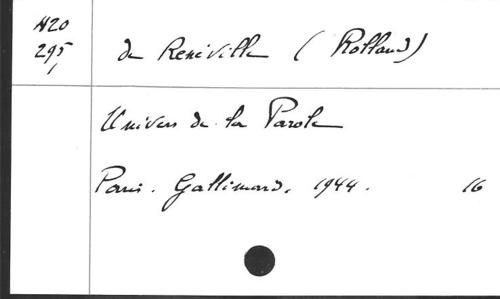 H20
295
1
de Reneville (Rolland)
Univers de la Parole
Paris. Gallimard, 1944. 16